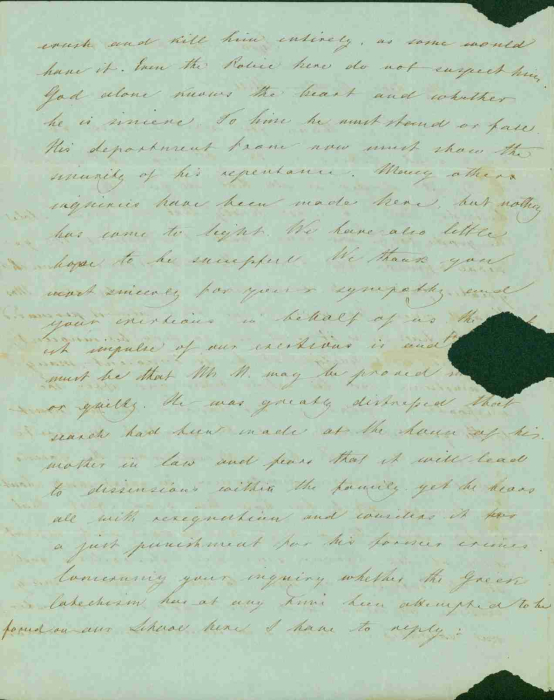 crush and kill him entirely, as some would
have it. Even the Police here do not suspect him.
God alone knows the heart and whether
he is sincere. To him he must stand or fall.
His deportment from now must show the
sincerity of his repentance. Many other
inquiries have been made here, but nothing
has come to light. We have also little
hope to be successful. We thank you
most sincerely for your sympathy and
your exertions in behalf of us the
impulse of our exertions is and
must be that Mr W. may be proved
or guilty. He was greatly distressed that
search had been made at the house of his
mother in law and fears that it will lead
to dissensions within the family yet he bears
all with resignation and considers it as
a just punishment for his former crimes.
Concerning your inquiry whether the Greek
Catechism has at any time been attempted to be
forced on our School here I have to reply: